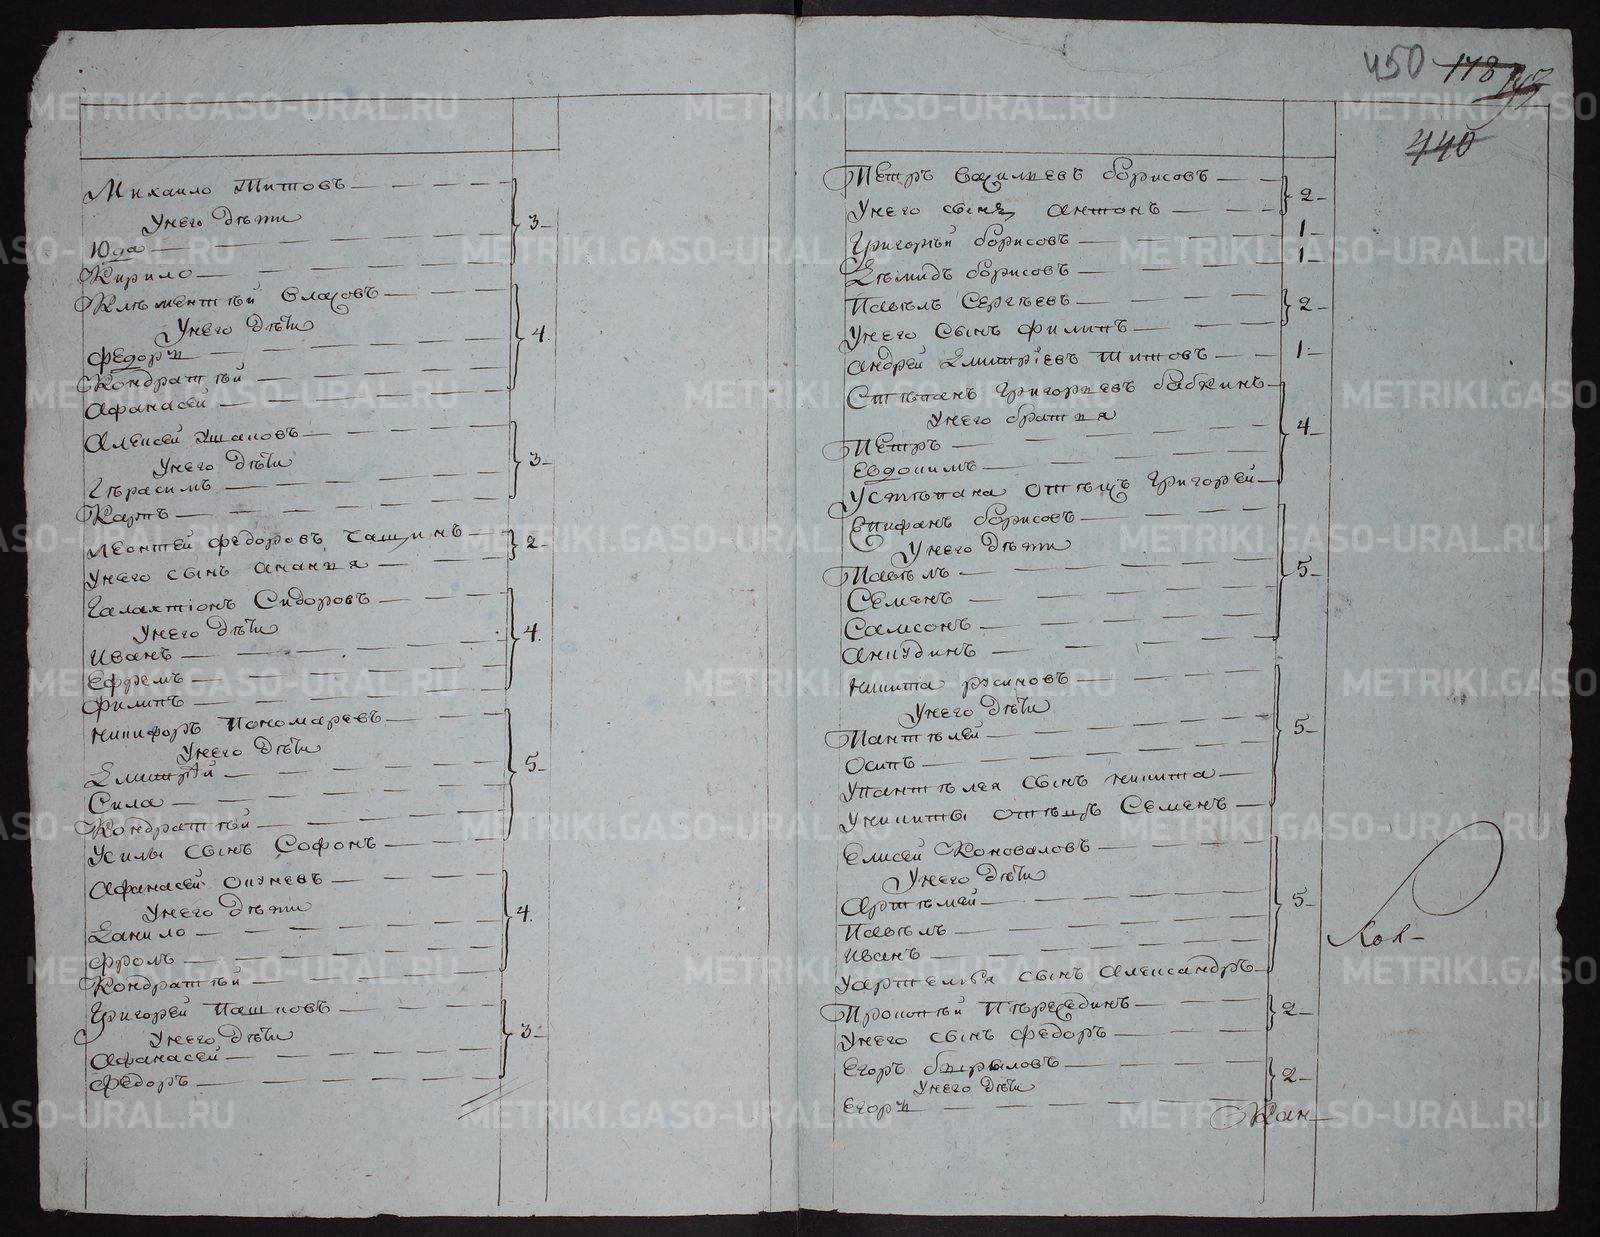 Михаило Титовъ 3
Унего Дѣти
Юда
Кирило
Клѣментьѣй Власовъ 4
Унего Дѣти
Федоръ
Кондратѣй
Афанасей
Алексей Ушаковъ 3
Унего Дѣти
Гѣрасимъ
Карпъ
Леонтей Федоровъ Чащинъ 2
Унего сынъ Ананья
Галахтіонъ Сидоровъ 4
Унего Дѣти
Иванъ
Ефремъ
Филипъ
Никифоръ Пономаревъ 5
Унего Дѣти
Дмитрѣй
Сила
Кондратѣй
Усилы сынъ Софонъ
Афанасей Окуневъ 4
Унего Дѣти
Данило
Фролъ
Кондратѣй
Григорей Пашковъ 3
Унего Дѣти
Афанасей
Федоръ
450 178
440
Петръ Васильевъ борисовъ 2
Унего сынъ Антонъ
Григорѣй борисовъ 1
Дѣмидъ борисовъ 1
Павѣлъ Сергѣевъ 2
Унего Сынъ Филипъ
Андрей Дмитрѣевъ Титовъ 1
Стѣпанъ Григорьевъ бабкинъ 4
Унего братья
Петръ
Евдокимъ
Устѣпана Отѣцъ Григорей
Епифанъ борисовъ 5
Унего Дѣти
Павѣлъ
Семенъ
Самсонъ
Анкудинъ
Никита русиновъ 5
Унего Дѣти
Пантѣлей
Осипъ
Упантѣлея Сынъ Никита
Уникиты отѣцъ Семенъ
Елисей Коноваловъ 5
Унего Дѣти
Артѣмей
Павѣлъ
Иванъ
Уартемья сынъ Александръ
Прокопѣй Пѣрѣединъ 2
Унего сынъ Федоръ
Егоръ 2
Унего Дѣти
Егоръ
Кол-
Кан-